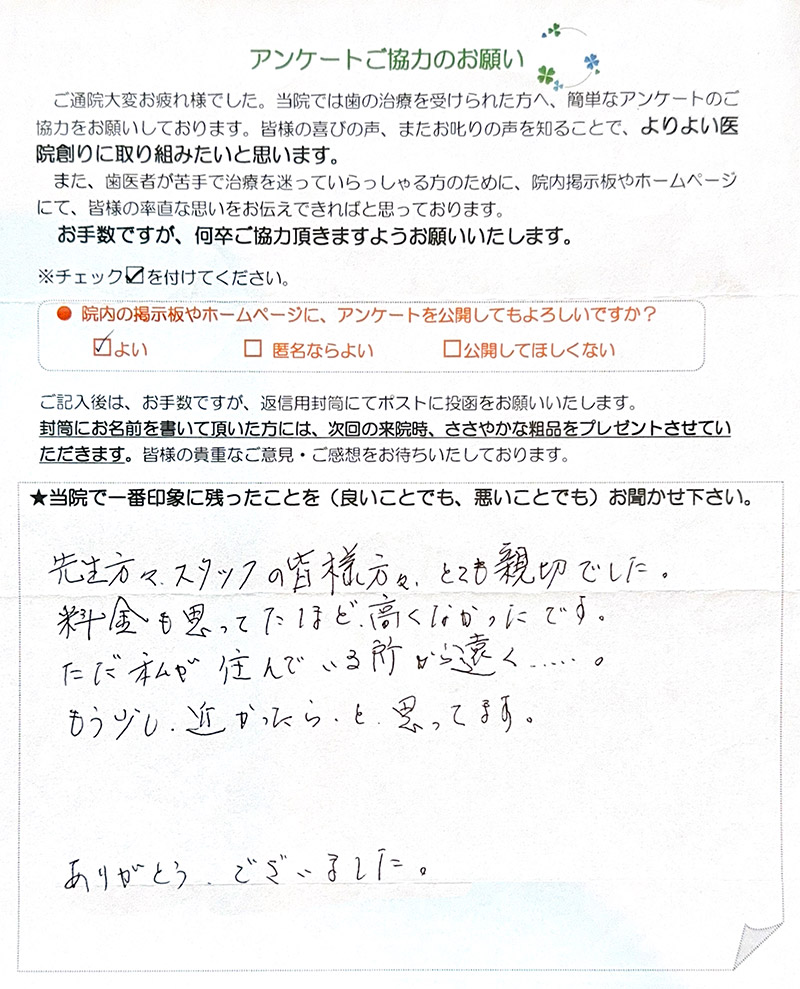 アンケートご協力のお願い
ご通院大変お疲れ様でした。当院では歯の治療を受けられた方へ、簡単なアンケートのご
協力をお願いしております。皆様の喜びの声、またお叱りの声を知ることで、よりよい医
院創りに取り組みたいと思います。
また、歯医者が苦手で治療を迷っていらっしゃる方のために、院内掲示板やホームページ
にて、皆様の率直な思いをお伝えできればと思っております。
お手数ですが、何卒ご協力頂きますようお願いいたします。
※チェック☑を付けてください。
● 院内の掲示板やホームページに、アンケートを公開してもよろしいですか？
☑よい □ 匿名ならよい □公開してほしくない
ご記入後は、お手数ですが、返信用封筒にてポストに投函をお願いいたします。
封筒にお名前を書いて頂いた方には、次回の来院時、ささやかな粗品をプレゼントさせてい
ただきます。皆様の貴重なご意見・ご感想をお待ちいたしております。
★当院で一番印象に残ったことを（良いことでも、悪いことでも）お聞かせ下さい。
先生方々、スタッフの皆様方々、とても親切でした。
料金も思ってたほど、高くなかったです。
ただ私が住んでいる所から遠く……。
もう少し、近かったら、と、思ってます。
ありがとう、ございました。